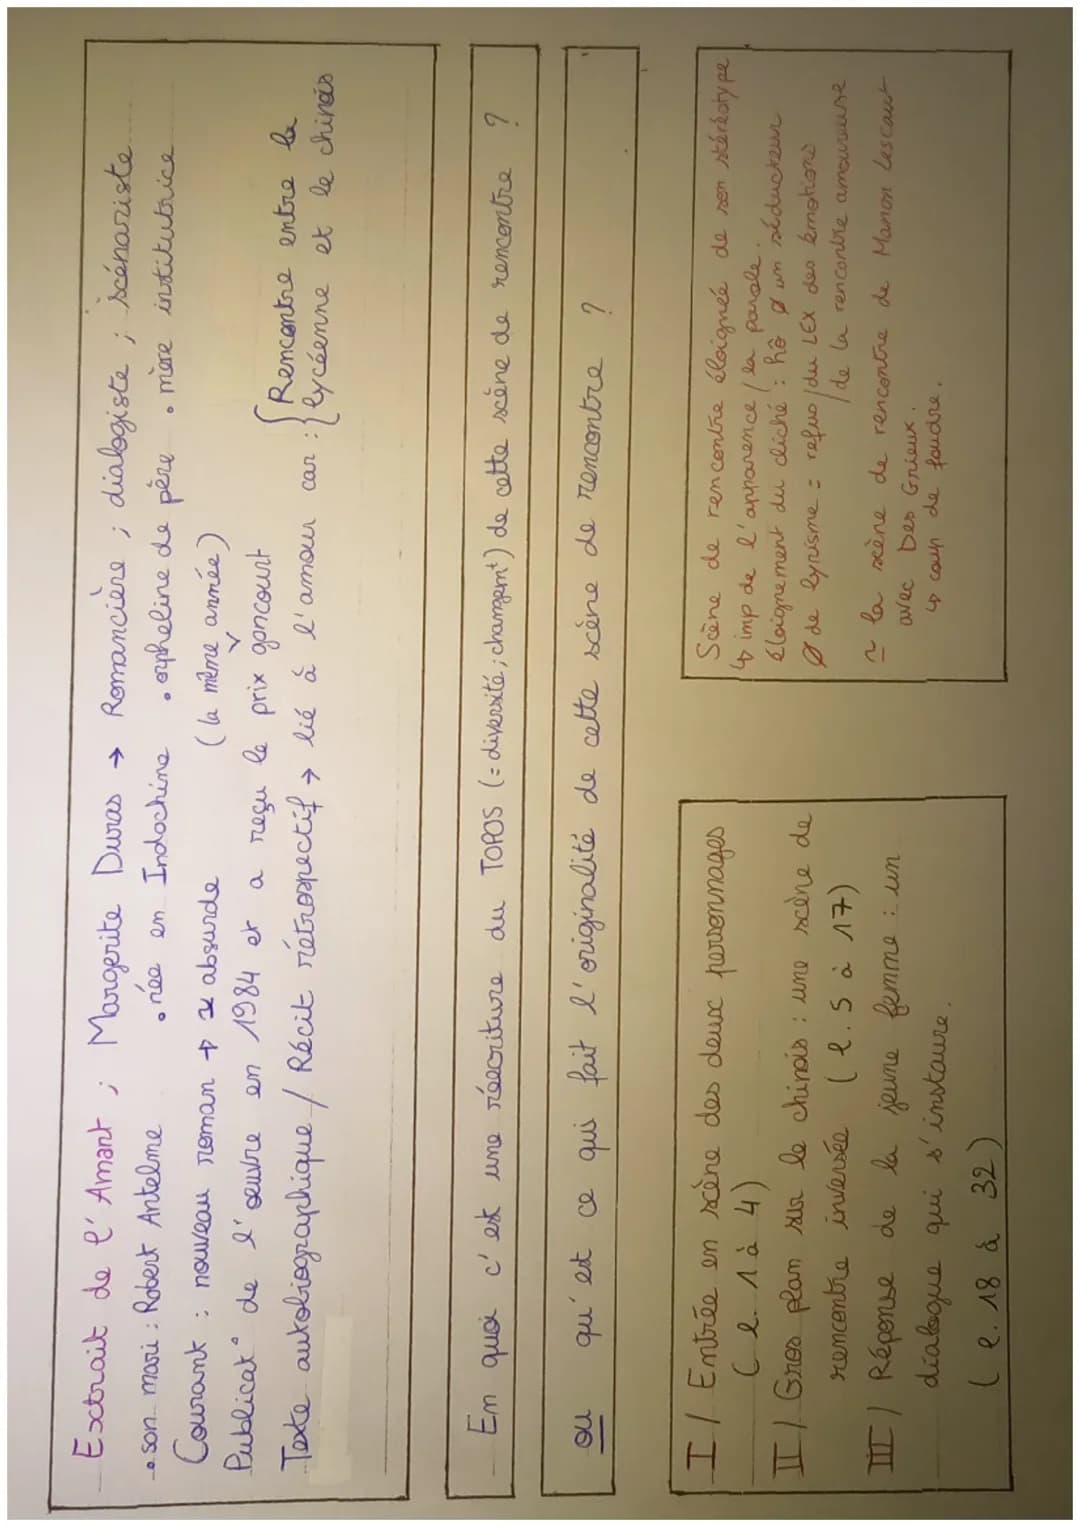 Extrait de l'Amant ; Margerite Duras → Romancière ; dialogiste ; scénariste
• son mari : Robert Antelme • née en Indochine • orpheline de père • mère institutrice
Courant : nouveau roman → absurde (la même année)
Publicat° de l'œuvre en 1984 et a reçu le prix goncourt
Texte autobiographique / Récit rétrospectif → lié à l'amour car : { Rencontre entre la
lycéenne et le chinois
En quoi c'est une réécriture du TOPOS (= diversité ; changemt) de cette scène de rencontre ?
ou qu'est ce qui fait l'originalité de cette scène de rencontre ?
I / Entrée en scène des deux personnages
(l. 1 à 4)
II / Gros plan sur le chinois : une scène de
rencontre inversée (l. 5 à 17)
III / Réponse de la jeune femme : un
dialogue qui s'instaure.
(l. 18 à 32)
Scène de rencontre éloignée de son stéréotype
↳ imp de l'apparence / la parole.
éloignement du cliché : hô ø un séducteur
ø de lyrisme = refus / du LEX des émotions
/ de la rencontre amoureuse
≃ la scène de rencontre de Manon Lescaut
avec Des Grieux.
↳ coup de foudre.